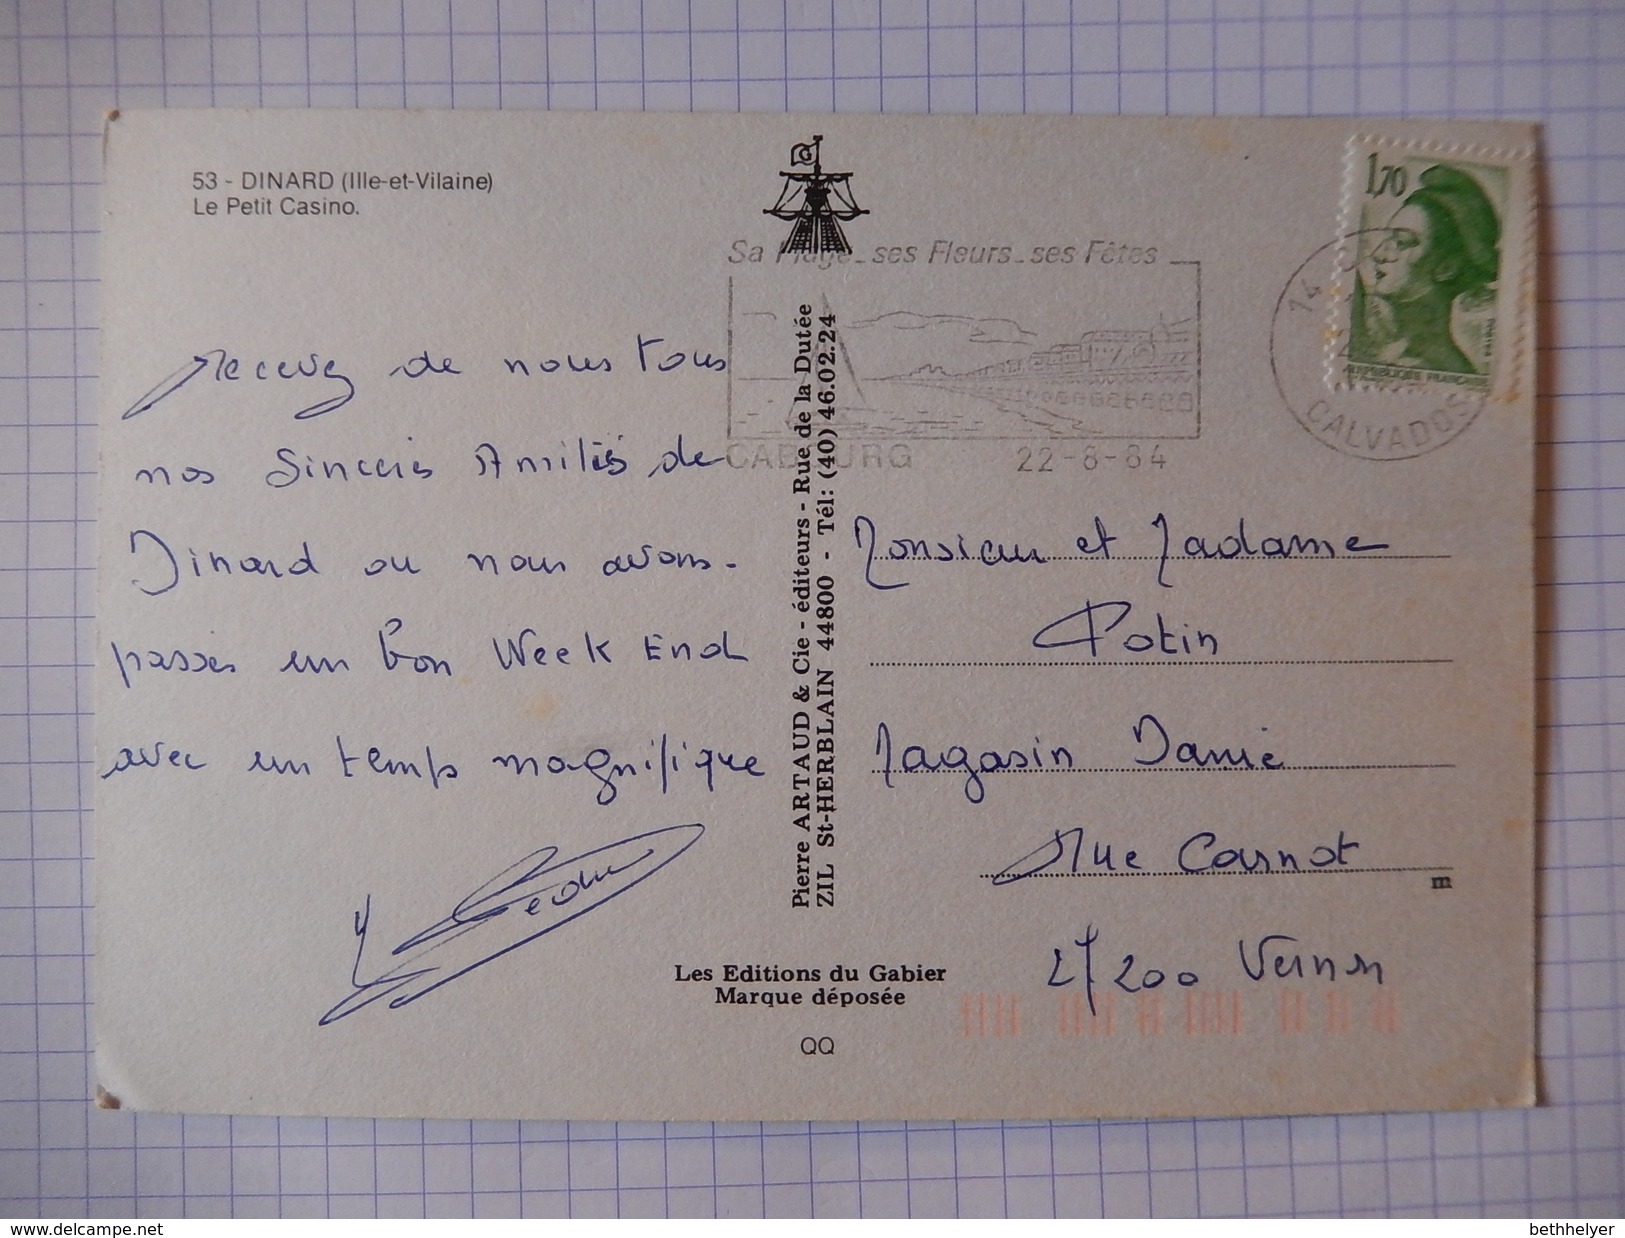 53 - DINARD (Ille-et-Vilaine)
Le Petit Casino.
Sa Plage - ses Fleurs - ses Fêtes
CABOURG 22-8-84
14
CALVADOS
1,70
REPUBLIQUE FRANÇAISE
recevez de nous tous
nos Sincères Amitiés de
Dinard ou nous avons
passer un bon Week End
avec un temps magnifique
Pierre ARTAUD & Cie - éditeurs - Rue de la Dutée
ZIL St-HERBLAIN 44800 - Tél: (40) 46.02.24
Monsieur et Madame
Potin
Magasin Danie
Rue Carnot
27200 Vernon
m
Les Editions du Gabier
Marque déposée
QQ
www.delcampe.net
bethhelyer